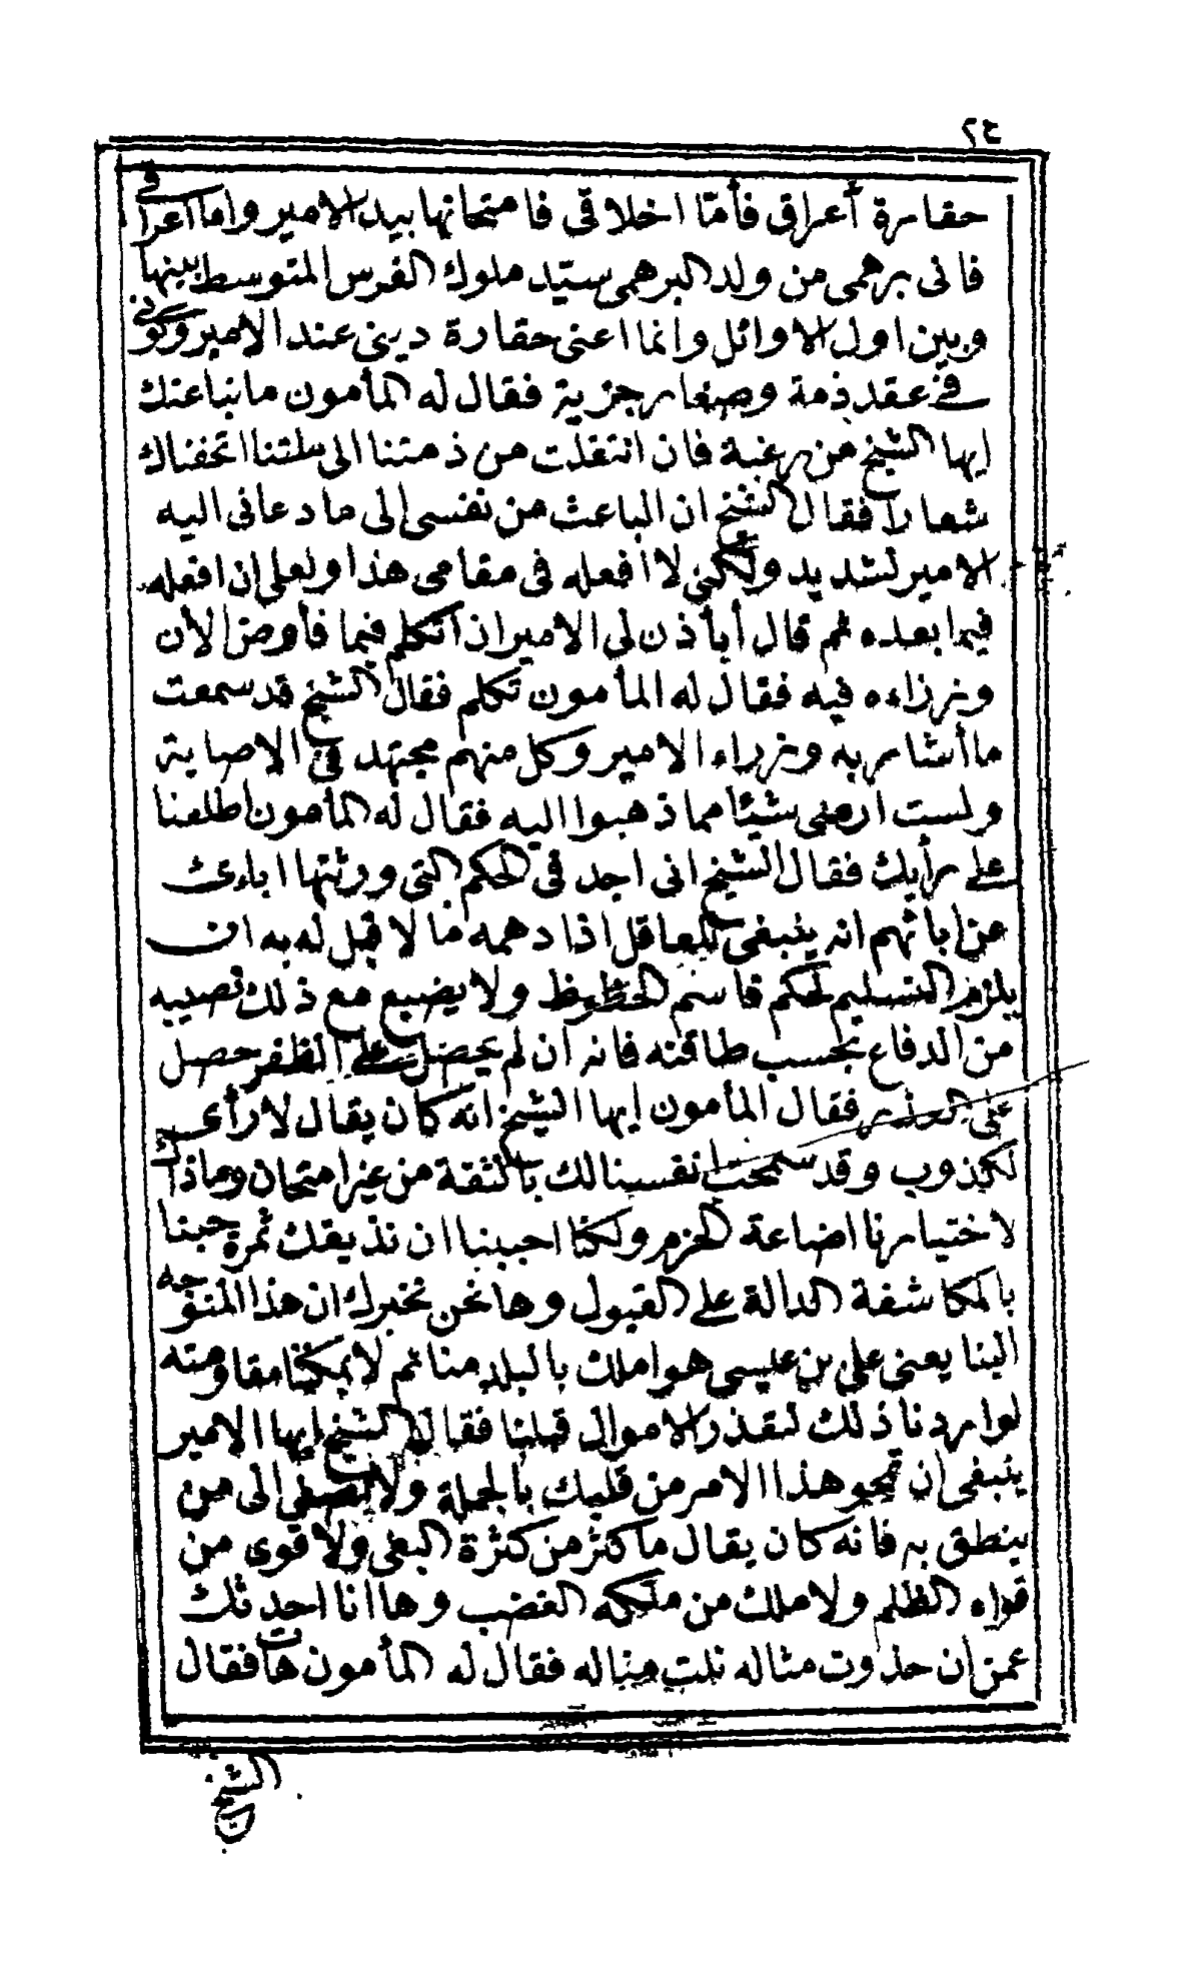 ٢٤
حقارة أعراقي فأمّا اخلاقي فامتحانها بيد الامير واما اعراقي
فانى برهمى من ولد البرهمى ستيد ملوك الفرس المتوسط بينها
وبين اول الاوائل وانما اعنى حقارة دينى عند الامير وكونى
فى عقد ذمة وصغار جزية فقال له المأمون ما نبا عنك
ايها الشيخ من رغبة فان انتقلت من ذمتنا الى ملتنا اتحفناك
شعارا فقال الشيخ ان الباعث من نفسى الى ما دعانى اليه
الامير لشديد ولكنى لا افعله فى مقامى هذا ولعلى ان افعله
فيما بعده ثم قال أيأذن لى الامير ان اتكلم فيما فأوض الأن
وزراءه فيه فقال له المأمون تكلم فقال الشيخ قد سمعت
ما أشار به وزراء الامير وكل منهم مجتهد فى الاصابة
ولست ارضى شيئا مما ذهبوا اليه فقال له المأمون اطلعنا
على رأيك فقال الشيخ انى اجد فى الحكم التى ورثتها اباءى
عن ابائهم انه ينبغى للعاقل اذا دهمه ما لا قبل له به ان
يلزم التسليم لحكم قاسم الحظوظ ولا يضيع مع ذلك نصيبه
من الدفاع بحسب طاقته فانه ان لم يحصل على الظفر حصل
على العذر فقال المأمون ايها الشيخ انه كان يقال لا رأى
لكذوب وقد سمحت انفسنا لك بالثقة من غير امتحان وما ذاك
لاختيارنا اضاعة الحزم ولكنا احببنا ان نذيقك ثمرة حبنا
بالمكاشفة الدالة على القبول وها نحن نخبرك ان هذا المتوجه
الينا يعنى على بن عيسى هو املك بالبلد منا ثم لا يمكننا مقاومته
لو اردنا ذلك لتعذر الاموال قبلنا فقال له الشيخ ايها الامير
ينبغى ان تمحو هذا الامر من قلبك بالجملة ولا تصغى الى من
ينطق به فانه كان يقال ما كثر من كثرة البغى ولا قوى من
قواه الظلم ولا ملك من ملكه الغضب وها انا احدثك
عمن ان حذوت مثاله نلت مناله فقال له المأمون هات فقال
الشيخ